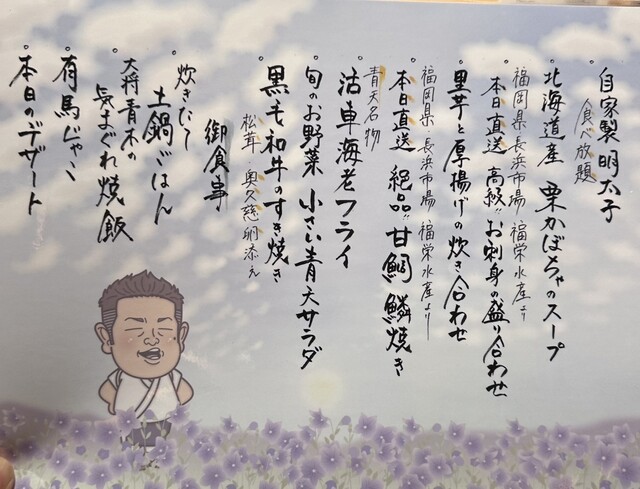 自家製明太子
食べ放題
北海道産 栗かぼちゃのスープ
福岡県長浜市場 福栄水産より
本日直送 高級"お刺身の盛り合わせ
里芋と厚揚げの炊き合わせ
福岡県 長浜市場 福栄水産より
本日直送 絶品"甘鯛 鱗焼き
青天名物
活車海老フライ
旬のお野菜 小さい青天サラダ
黒毛和牛のすき焼き
松茸・奥久慈卵添え
御食事
炊きたて
土鍋ごはん
大将青木の
気まぐれ焼飯
有馬じゃこ
本日のデザート